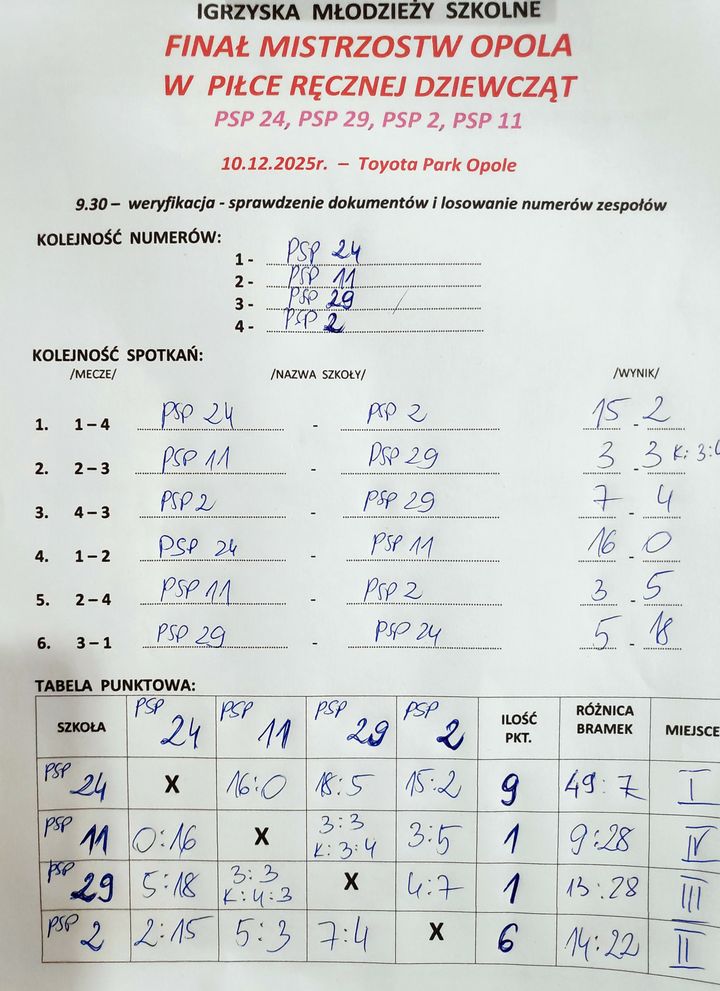 IGRZYSKA MŁODZIEŻY SZKOLNE
FINAŁ MISTRZOSTW OPOLA
W PIŁCE RĘCZNEJ DZIEWCZĄT
PSP 24, PSP 29, PSP 2, PSP 11
10.12.2025r. – Toyota Park Opole
9.30 – weryfikacja - sprawdzenie dokumentów i losowanie numerów zespołów
KOLEJNOŚĆ NUMERÓW:
1 - PSP 24
2 - PSP 11
3 - PSP 29
4 - PSP 2
KOLEJNOŚĆ SPOTKAŃ:
/MECZE/ /NAZWA SZKOŁY/ /WYNIK/
1. 1 – 4 PSP 24 - PSP 2 15 - 2
2. 2 – 3 PSP 11 - PSP 29 3 - 3 K: 3:
3. 4 – 3 PSP 2 - PSP 29 7 - 4
4. 1 – 2 PSP 24 - PSP 11 16 - 0
5. 2 – 4 PSP 11 - PSP 2 3 - 5
6. 3 – 1 PSP 29 - PSP 24 5 - 18
TABELA PUNKTOWA:
SZKOŁA PSP 24 PSP 11 PSP 29 PSP 2 ILOŚĆ PKT. RÓŻNICA BRAMEK MIEJSCE
PSP 24 X 16:0 18:5 15:2 9 49:7 I
PSP 11 0:16 X 3:3 K:3:4 3:5 1 9:28 IV
PSP 29 5:18 3:3 K:4:3 X 4:7 1 13:28 III
PSP 2 2:15 5:3 7:4 X 6 14:22 II